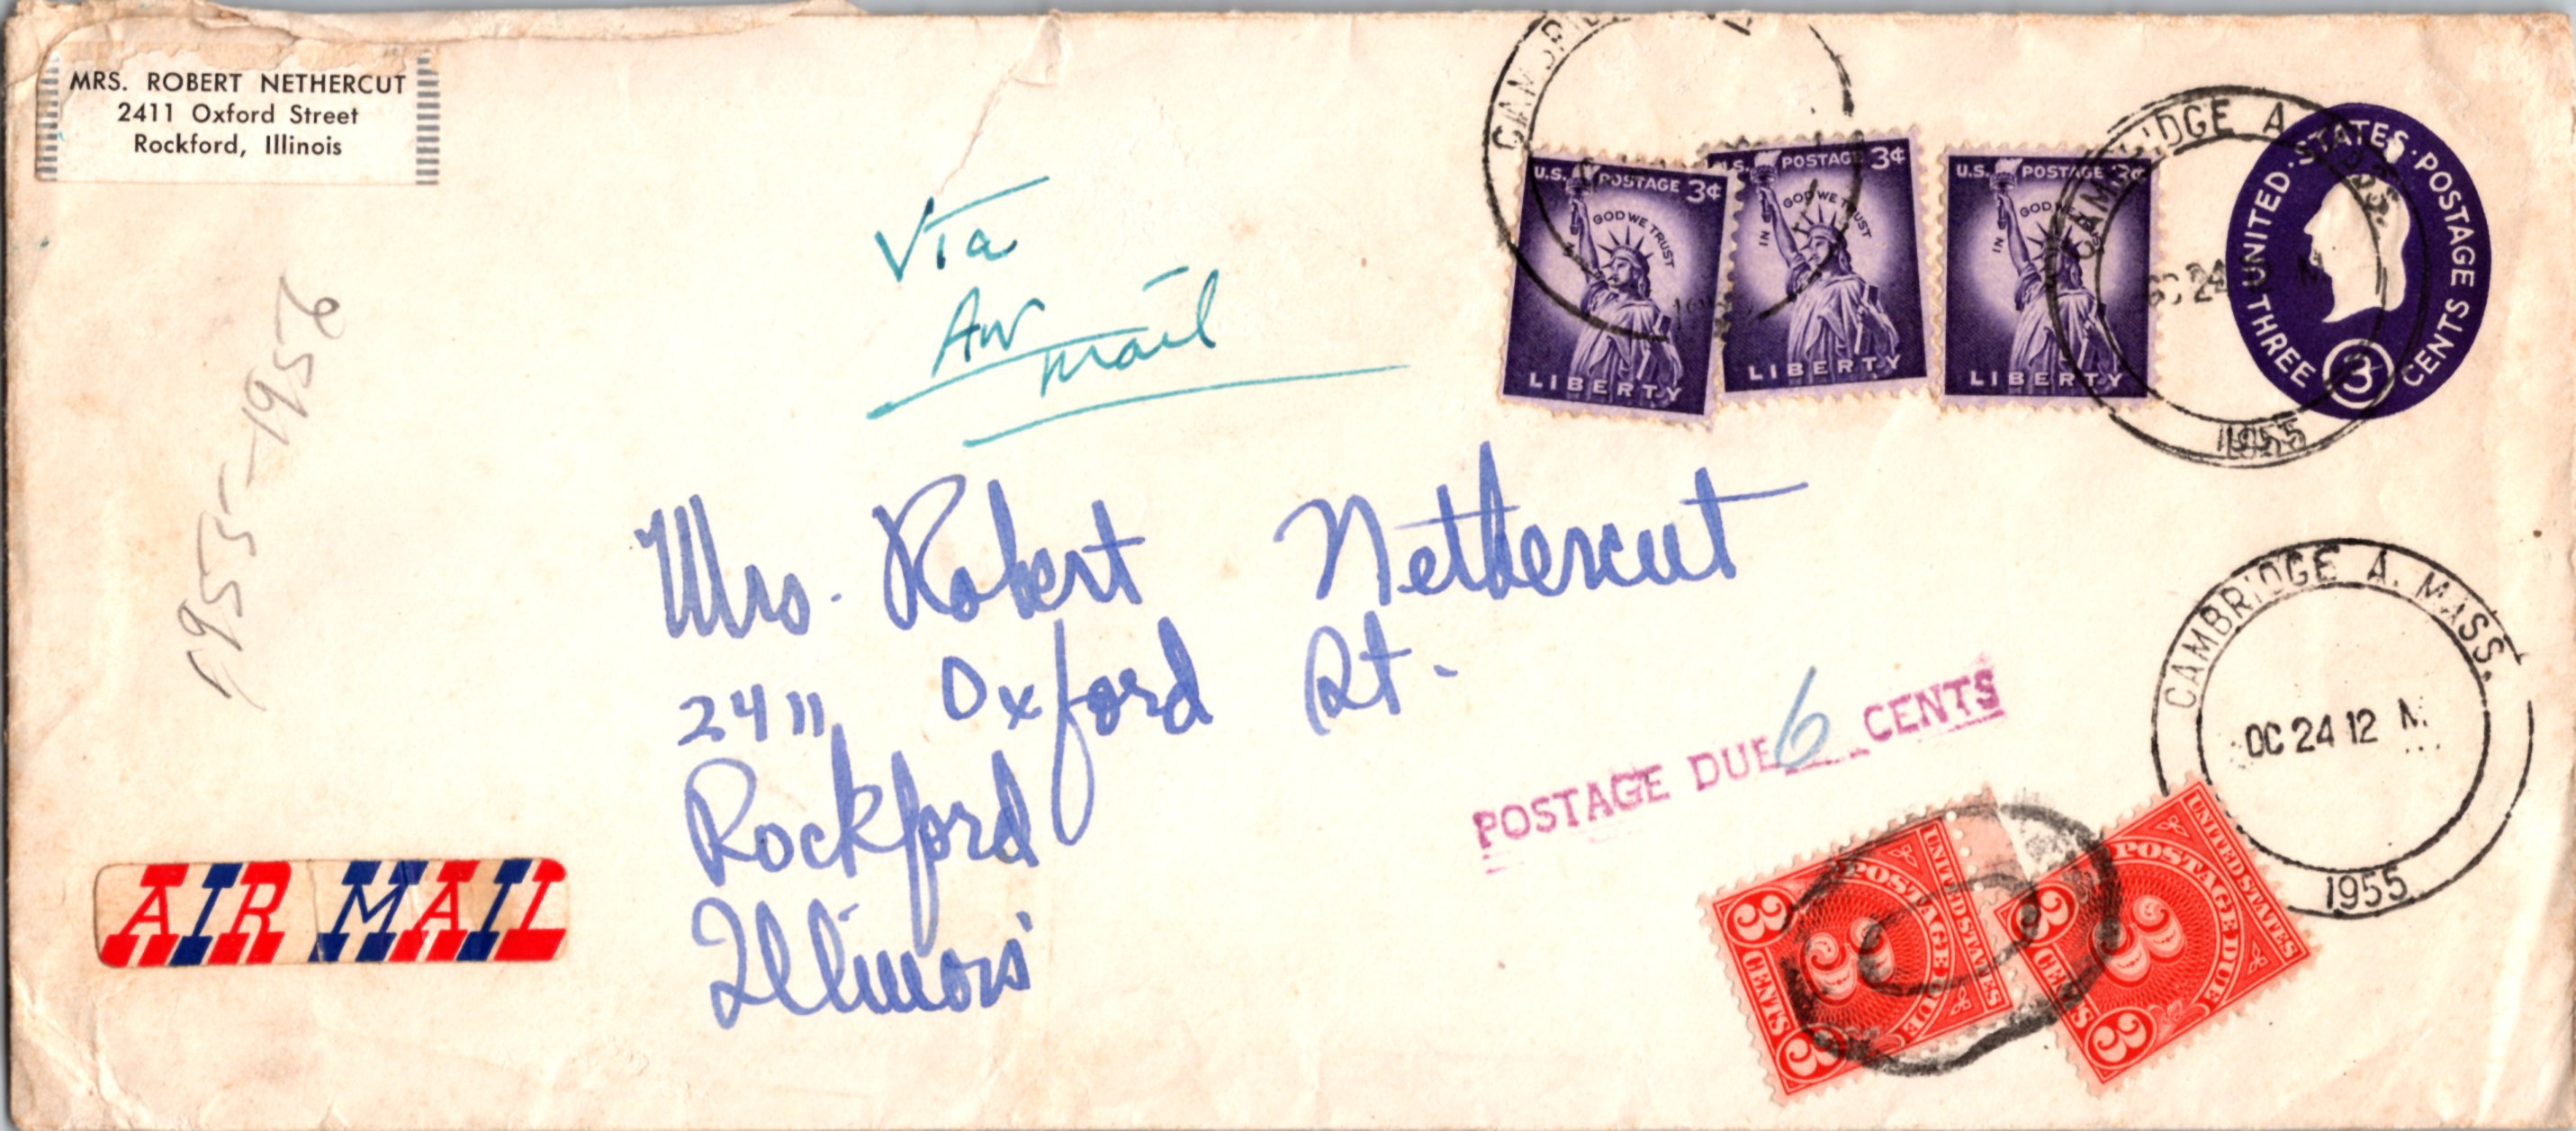 MRS. ROBERT NETHERCUT
2411 Oxford Street
Rockford, Illinois
1955-1956
Via
Air
mail
CAMBRID
U.S. POSTAGE 3¢
IN GOD WE TRUST
LIBERTY
U.S. POSTAGE 3¢
IN GOD WE TRUST
LIBERTY
U.S. POSTAGE 3¢
IN GOD WE
LIBERTY
CAMBRIDGE A. MASS.
OC 24
1955
UNITED · STATES · POSTAGE
THREE 3 CENTS
Mrs. Robert Nethercut
2411 Oxford St.
Rockford
Illinois
CAMBRIDGE A. MASS.
OC 24 12 M
1955
POSTAGE DUE 6 CENTS
UNITED STATES
POSTAGE DUE
3 3 CENTS 3
UNITED STATES
POSTAGE DUE
3 3 CENTS 3
AIR MAIL